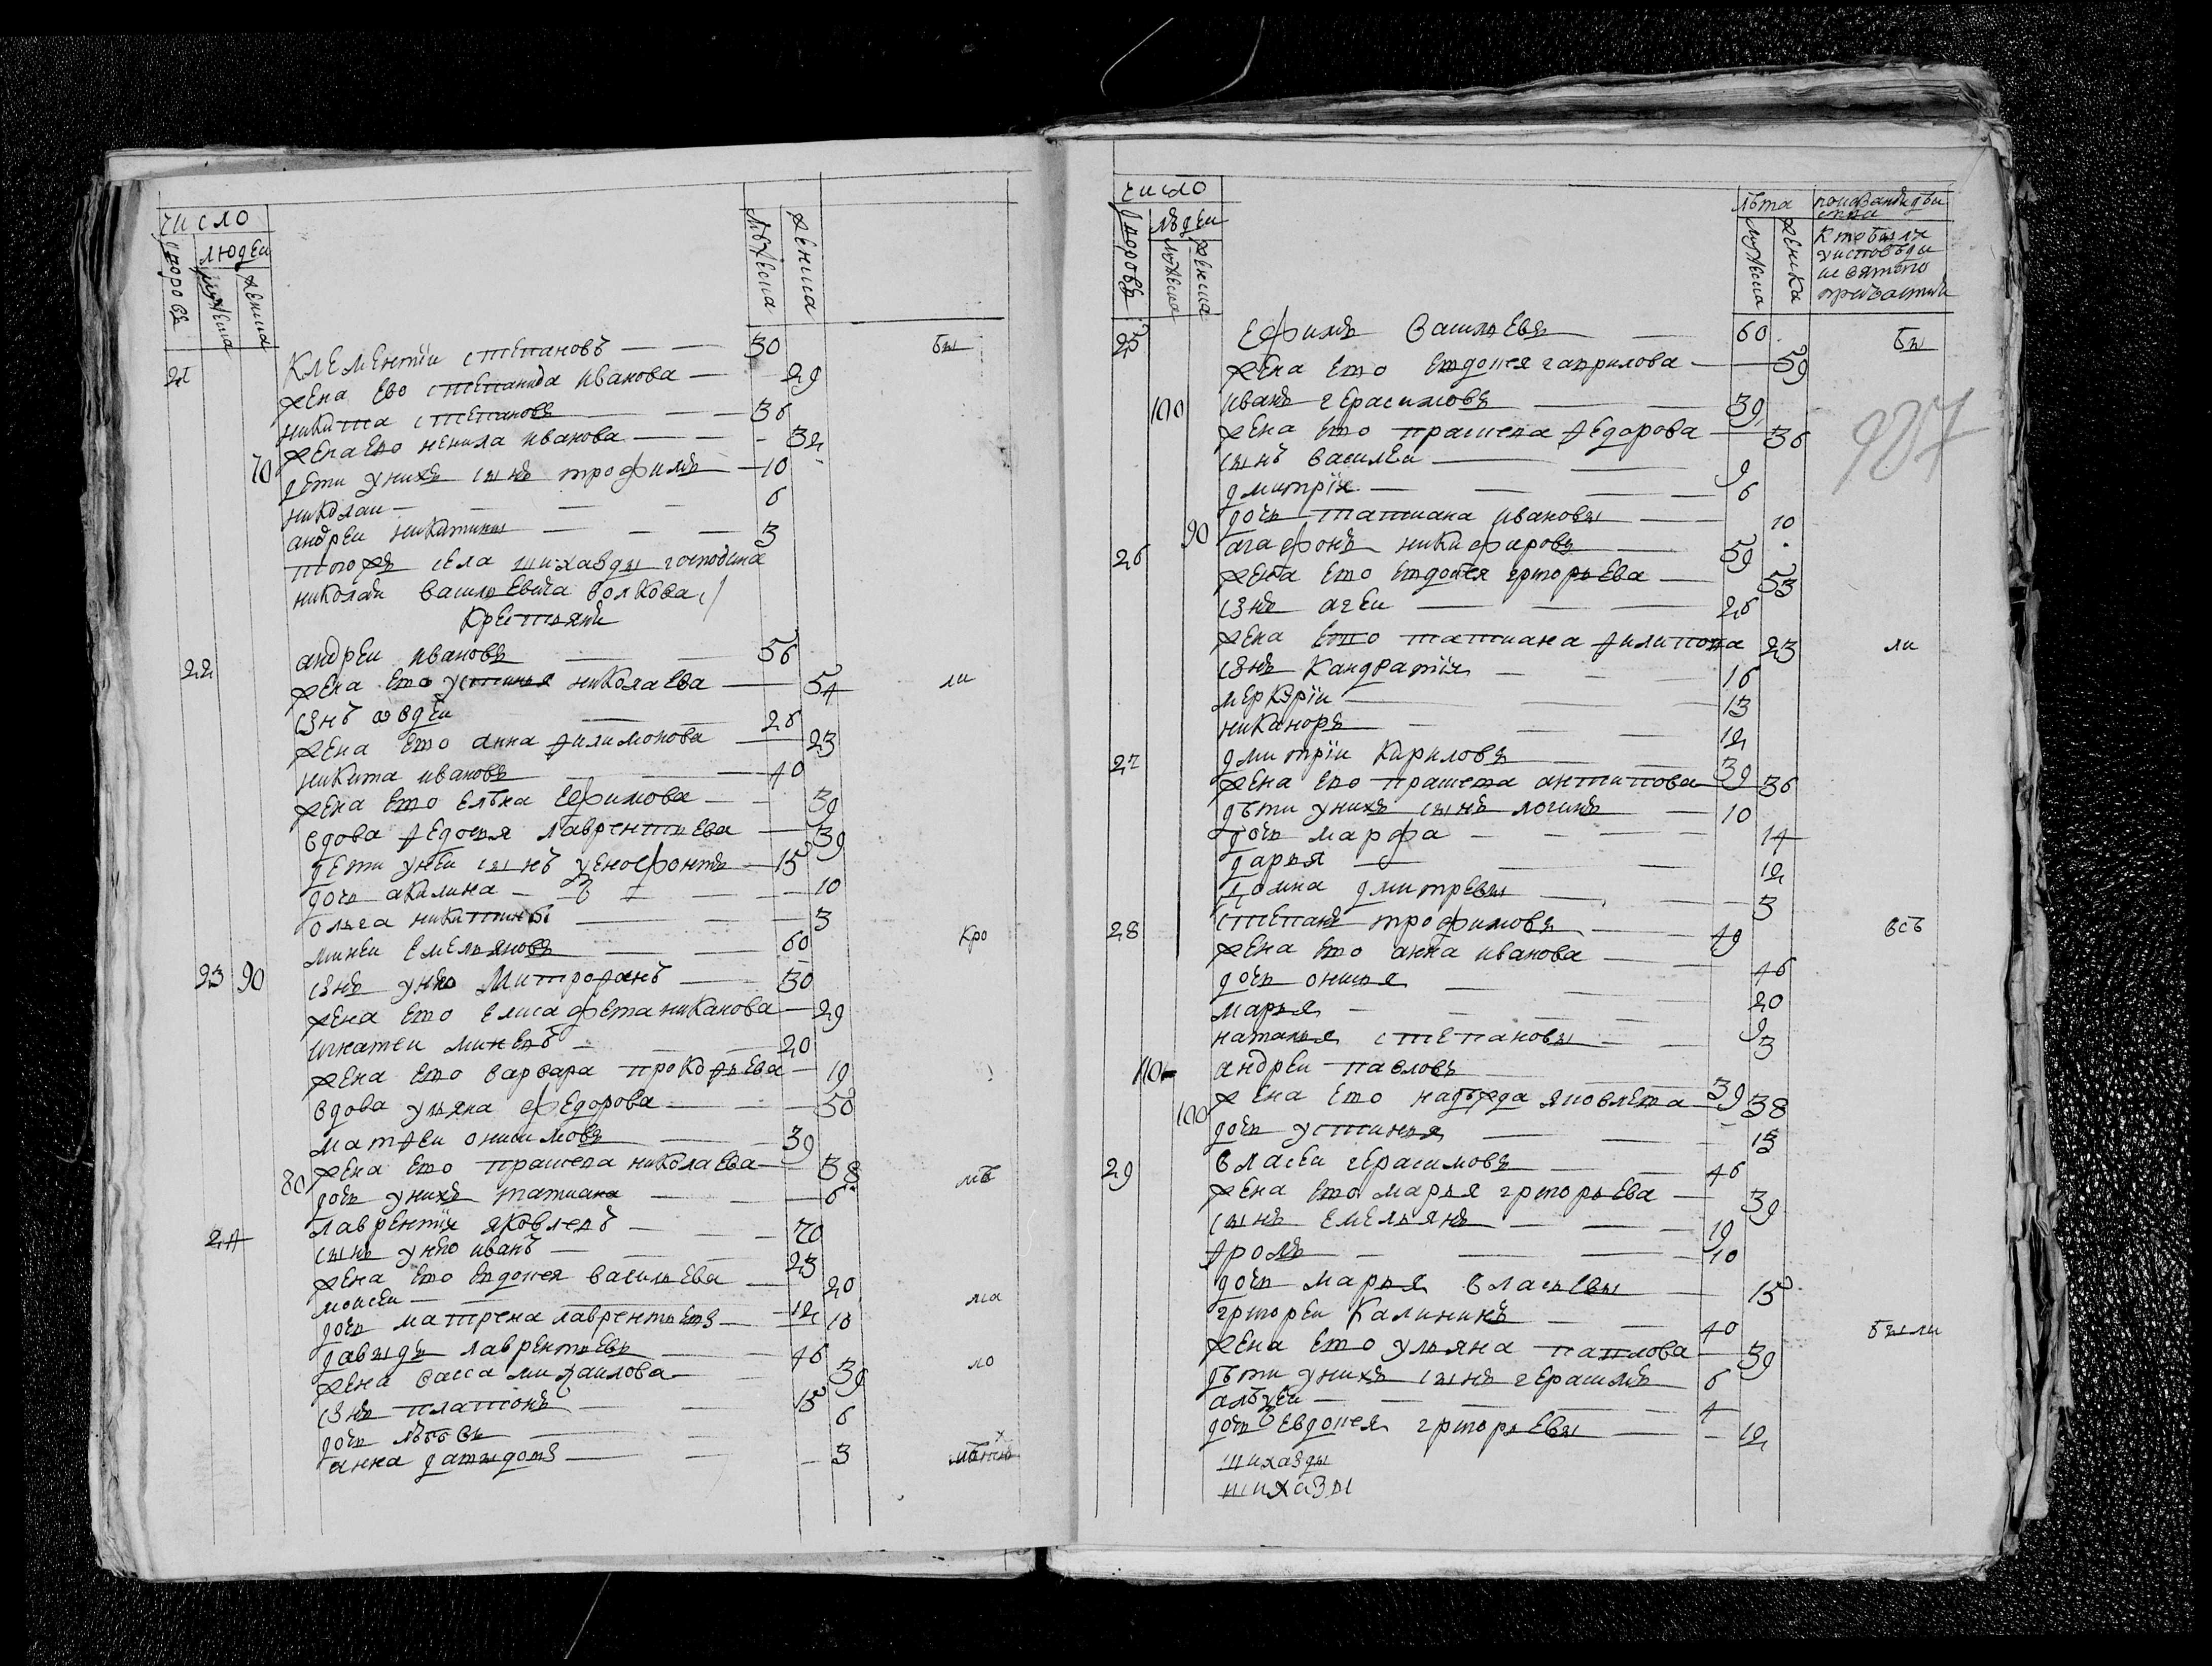 число
людеи
дворовъ
мужеска
женска
мужеска
женска
21 Клементіи степановъ 30 бы
жена ево степанида иванова 29
никита степановъ 36
жена ево ненила иванова 32
70 дети унихъ сынъ трофимъ 10
николаи 6
андреи никитины 3
тогожъ села шихазды господина
николаи васильевича волкова
крестьяни
22 андреи ивановъ 56
жена ево устинья николаева 54 ли
сзнъ авдеи 26
жена ево анна филимонова 23
никита ивановъ 40
жена ево елѣна ефимова 39
вдова федосья лаврентьева 39
дети унеи сынъ ксенофонтъ 15
дочь акилина 10
ольга никитины 3
23 90 минеи емельяновъ 60 кро
сзнъ унево митрофанъ 30
жена ево елисафета никанова 29
игнатеи минеевъ 20
жена ево варвара прокофьева 19
вдова ульяна федорова 50
матфеи онисимовъ 39
80 жена ево прасковья николаева 38
дочь унихъ татиана 6 мѣ
24 лаврентіи яковлевъ 70
сынъ унево иванъ 23
жена ево евдокея васильева 20
моисеи 12 ма
дочь матрена лаврентьевы 10
давыдъ лаврентьевъ 46
жена васса михаилова 39 мо
сзнъ платонъ 15
дочь любовь 6
анна давыдовы 3
число
людеи
дворовъ
мужеска
женска
лѣта
мужеска
женска
кто былъ
уисповѣди
исвятого
причастия
25 Ефимъ васильевъ 60 бы
жена ево евдокея гаврилова 59
100 иванъ герасимовъ 39
жена ево прасковья федорова 36
сынъ василеи 9
дмитріи 6
90 дочь татиана ивановы 10
26 агафонъ никифаровъ 59
жена ево евдокея григорьева 53
сзнъ агеи 26
жена ево татиана филипова 23 ли
сзнъ кандратіи 16
меркурiи 13
никаноръ 12
27 дмитріи кириловъ 39
жена ево прасковья антипова 36
дѣти унихъ сынъ логинъ 10
дочь марфа 14
дарья 12
домна дмитревы 3
28 степанъ трофимовъ 49 всѣ
жена ево анна иванова 46
дочь онисья 20
марья 9
наталья степановы 3
110 андреи павловъ 39
100 жена ево надѣжда яковлева 38
дочь устинья 13
29 власеи герасимовъ 46
жена ево марья григорьева 39
сынъ емельянъ 19
фролъ 10
дочь марья власьевы 15
григореи калининъ 40
жена ево ульяна павлова 39 были
дѣти унихъ сынъ герасимъ 6
алѣксеи 4
дочь евдокея григорьевы 12
шихазды
шихазы
227